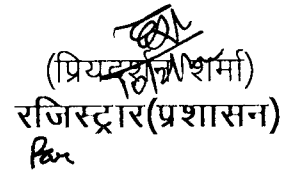 (प्रियदर्शन शर्मा)
रजिस्ट्रार(प्रशासन)